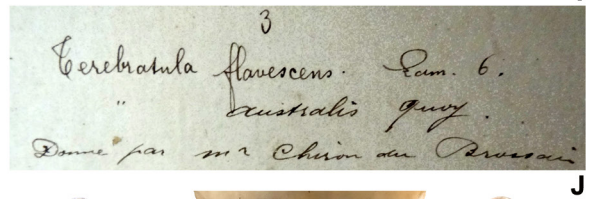 3
Terebratula flavescens. Lam. 6.
" australis Quoy.
Donné par mr Chiron du Brossai
J